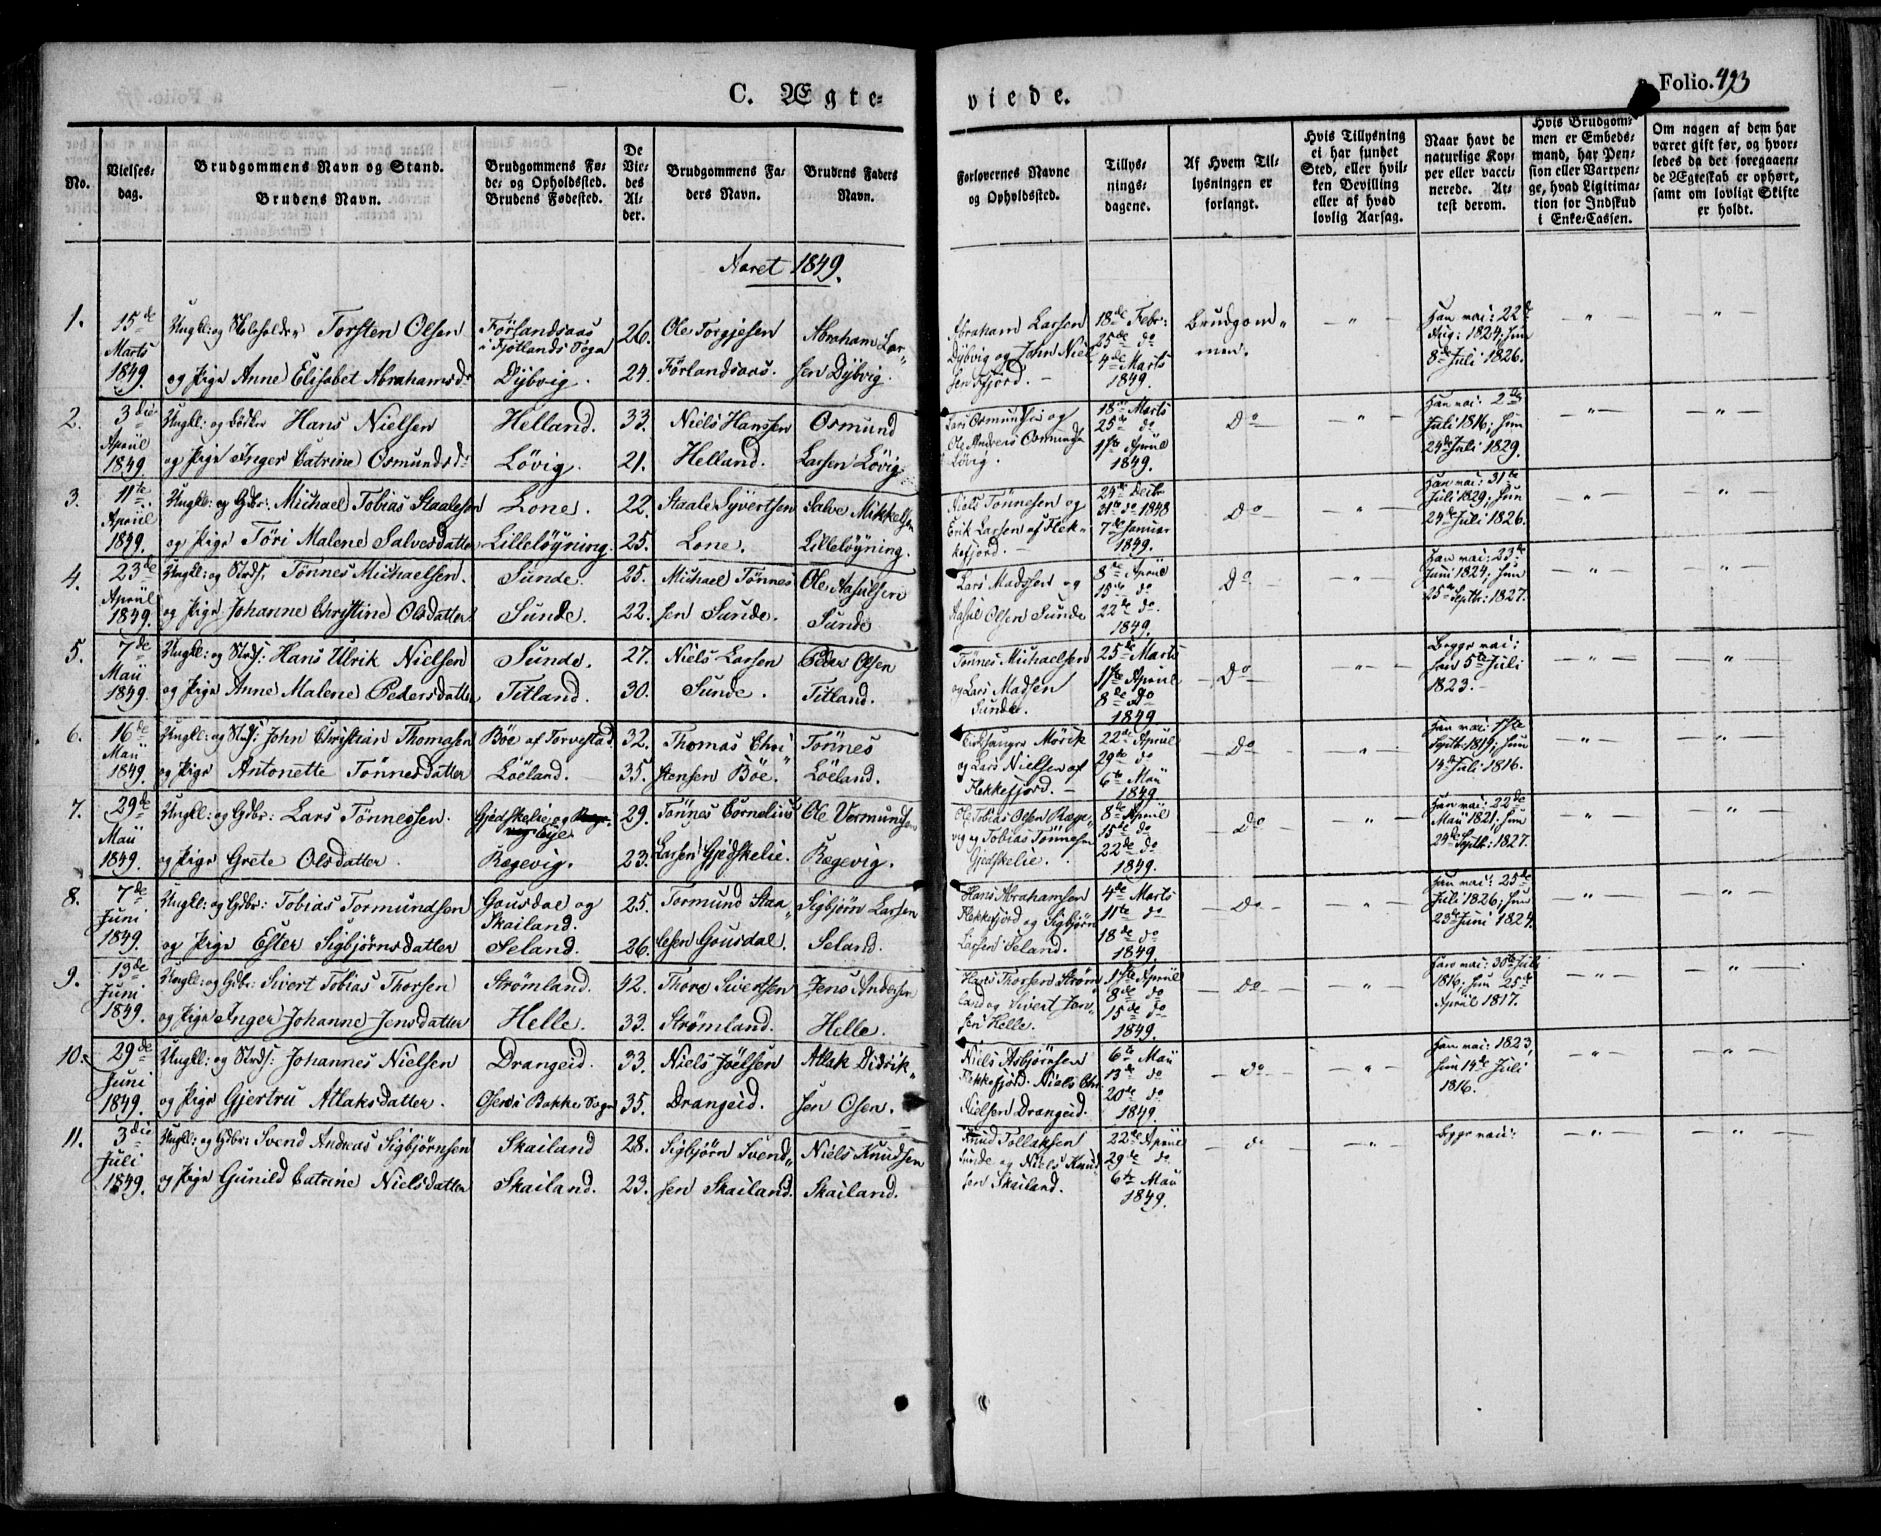 C. Ægte-
viede.
Folio. 493
No.
Vielses-
dag.
Brudgommens Navn og Stand.
Brudens Navn.
Brudgommens Fø-
de- og Opholdssted.
Brudens Fødested.
De
Vie-
des
Al-
der.
Brudgommens Fa-
ders Navn.
Brudens Faders
Navn.
Forlovernes Navne
og Opholdssted.
Tillys-
nings-
dagene.
Af Hvem Til-
lysningen er
forlangt.
Hvis Tillysning
ei har fundet
Sted, eller hvil-
ken Bevilling
eller af hvad
lovlig Aarsag.
Naar havt de
naturlige Kop-
per eller vacci-
nerede. At-
test derom.
Hvis Brudgom-
men er Embeds-
mand, har Pen-
sion eller Vartpen-
ge, hvad Ligitima-
tion for Indskud
i Enke-Cassen.
Om nogen af dem har
været gift før, og hvor-
ledes da det foregaaen-
de Ægteskab er ophørt,
samt om lovligt Skifte
er holdt.
Aaret 1849.
1.
15de
Marts
1849.
Ungkl: og Skoleholder Torsten Olsen
og Pige Anne Elisabet Abrahamsd:
Førlandsaas
i Fjotlands Sogn
Dÿbvig.
26.
24.
Ole Torgjesen
Førlandsaas.
Abraham Lar-
sen Dÿbvig.
Abraham Larsen
Dÿbvig og John Niel-
sen Fjord.
18de Febr:
25de do
4de Marts
1849.
Brudgom-
men.
— " —
Han vai: 22de
Aug: 1824; hun
8de Juli 1826.
— " —
— " —
2.
3die
Apriil
1849.
Ungkl: og Bødker Hans Nielsen
og Pige Inger Catrine Osmundsd:
Helland.
Løvig.
33.
21.
Niels Hanssen
Helland.
Osmund
Larsen Løvig.
Lars Osmundsen og
Ole Andreas Osmunds
Løvig.
18de Marts
25de do
1ste Apriil
1849.
Do
— " —
Han vai: 2den
Juli 1816; hun
24de Juli 1829.
— " —
— " —
3.
11te
Apriil
1849.
Ungkl: og Gdbr: Michael Tobias Staalesen
og Pige Töri Malene Salvesdatter
Lone.
Lilleløyning.
22.
25.
Staale Syvertsen
Lone.
Salve Mikkelsen
Lilleløyning.
Niels Tønnesen og
Erik Larsen af Flek-
kefjord.
24de Decbr
31te do 1848
7de Januar
1849.
Do
— " —
Han vai: 31te
Juli 1829; hun
24de Juli 1826.
— " —
— " —
4.
23de
Apriil
1849.
Ungkl: og Strds: Tönnes Michaelsen.
og Pige Johanne Christine Olsdatter
Sunde.
Sunde.
25.
22.
Michael Tönnes-
sen Sunde.
Ole Aasulsen
Sunde
Lars Madssen og
Aasul Olsen Sunde
8de Apriil
15de do
22de do
1849.
Do
— " —
Han vai: 23de
Juni 1824; hun
25de Septb: 1827.
— " —
— " —
5.
7de
Maii
1849.
Ungkl: og Strds: Hans Ulrik Nielsen
og Pige Anne Malene Pedersdatter
Sunde.
Titland.
27.
30.
Niels Larsen
Sunde.
Peder Olsen
Titland.
Tönnes Michaelsen
og Lars Madsen
Sunde.
25de Marts
1ste Apriil
8de do
1849
Do
— " —
Begge vai:
han 5te Juli
1823.
— " —
— " —
6.
16de
Maii
1849.
Ungkl: og Strds: John Christian Thomasen
og Pige Antonette Tönnesdatter
Böe af Torvestad
Löeland.
32.
35.
Thomas Chri-
stensen Böe.
Tönnes
Löeland.
Kirksanger Mörik
og Lars Nielsen af
Flekkefjord.
22de Apriil
29de do
6te Maii
1849
Do
— " —
Han vai: 1ste
Septb: 1819; hun
14de Juli 1816.
— " —
— " —
7.
29de
Maii
1849.
Ungkl: og Gdbr: Lars Tönnessen.
og Pige Grete Olsdatter.
Gjedskelie og
Eye
Rægevig.
29.
23.
Tönnes Cornelius
Larsen Gjedskelie.
Ole Vermundsen
Rægevig.
Ole Tobias Olsen Ræge-
vig og Tobias Tönnesen
Gjedskelie.
8de Apriil
15de do
22de do
1849.
Do
— " —
Han vai: 22de
Maii 1821; hun
24de Septb: 1827.
— " —
"
8.
7de
Juni
1849.
Ungkl: og Gdbr: Tobias Tormundsen
og Pige Ester Sigbjørnsdatter
Gousdal og
Skailand.
Seland.
25.
26.
Tormund Staa-
lesen Gousdal.
Sigbjørn Larsen
Seland.
Hans Abrahamsen
Flekkefjord og Sigbjørn
Larsen Seland.
4de Marts
11te do
18de do
1849.
Do
— " —
Han vai: 25de
Juli 1826; hun
23de Juni 1824.
— " —
— " —
9.
13de
Juni
1849.
Ungkl: og Gdbr: Sivert Tobias Thorsen
og Pige Inger Johanne Jensdatter
Strømland.
Helle.
42.
33.
Thore Sivertsen
Strømland.
Jens Andersen
Helle.
Hans Thorsen Strøm-
land og Sivert Jen-
sen Helle.
1ste Apriil
8de do
15de do
1849.
Do
— " —
Han vai: 30te Juli
1816; hun 25de
Apriil 1817.
— " —
— " —
10.
29de
Juni
1849.
Ungkl: og Strds: Johannes Nielsen
og Pige Gjertru Atlaksdatter.
Drangeid.
Osen i Bakke Sogn
33.
35.
Niels Joelsen
Drangeid.
Atlak Didrik-
sen Osen.
Niels Asbjørnsen
Flekkefjord. Niels Chr.
Nielsen Drangeid.
6te Maii
13de do
20de do
1849.
Do
— " —
Han vai: 1823,
hun 14de Juli
1816.
— " —
— " —
11.
3die
Juli
1849.
Ungkl: og Gdbr: Svend Andreas Sigbjørnsen
og Pige Gunild Catrine Nielsdatter
Skailand
Skailand.
28.
23.
Sigbjørn Svend-
sen Skailand.
Niels Knudsen
Skailand.
Knud Tollaksen
Sunde og Niels Knud-
sen Skailand.
22de Apriil
29de do
6te Maii
1849.
do
— " —
Begge vai:
— " —
— " —